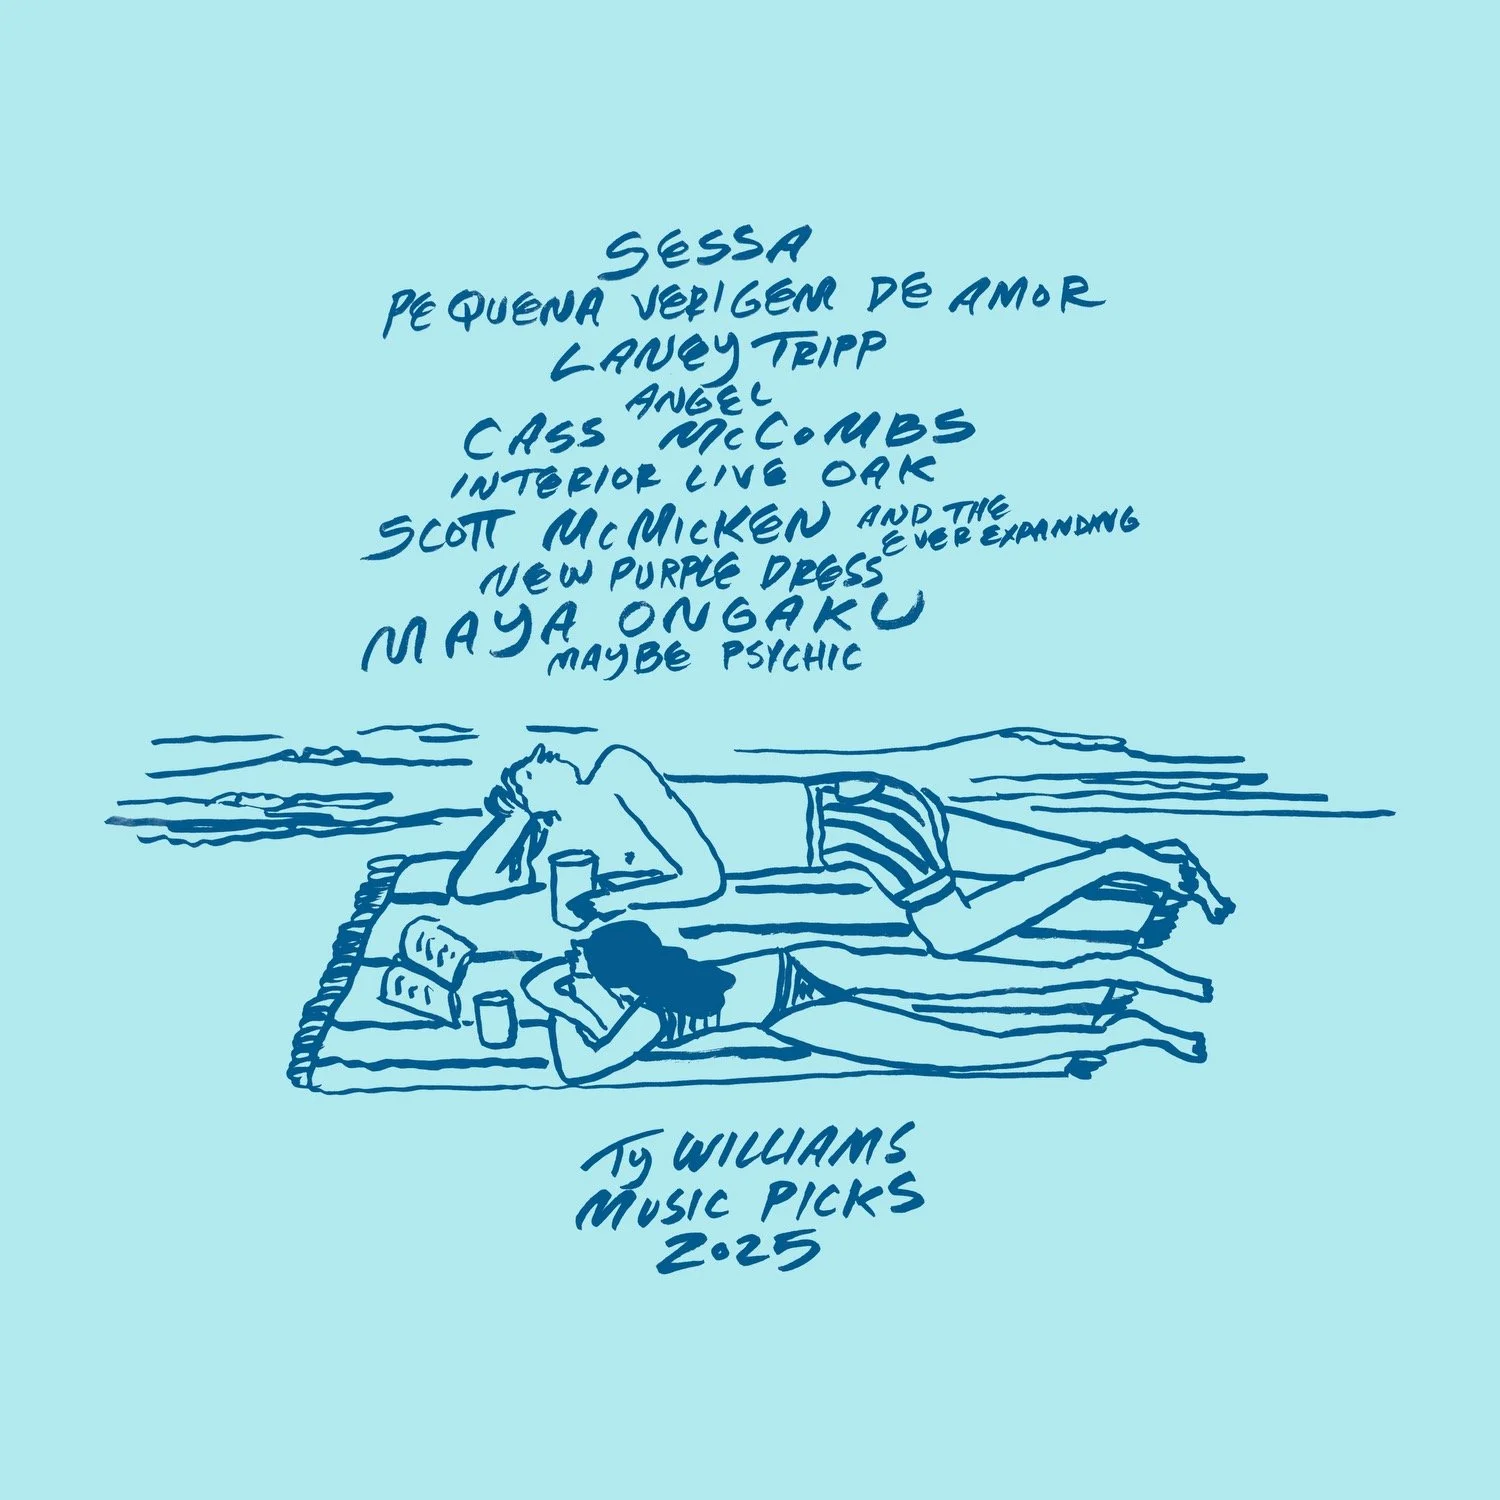 SESSA
PEQUENA VERIGEM DE AMOR
LANEY TRIPP
ANGEL
CASS McCOMBS
INTERIOR LIVE OAK
SCOTT McMICKEN AND THE
EVER EXPANDING
NEW PURPLE DRESS
MAYA ONGAKU
MAYBE PSYCHIC
Ty WILLIAMS
MUSIC PICKS
2025